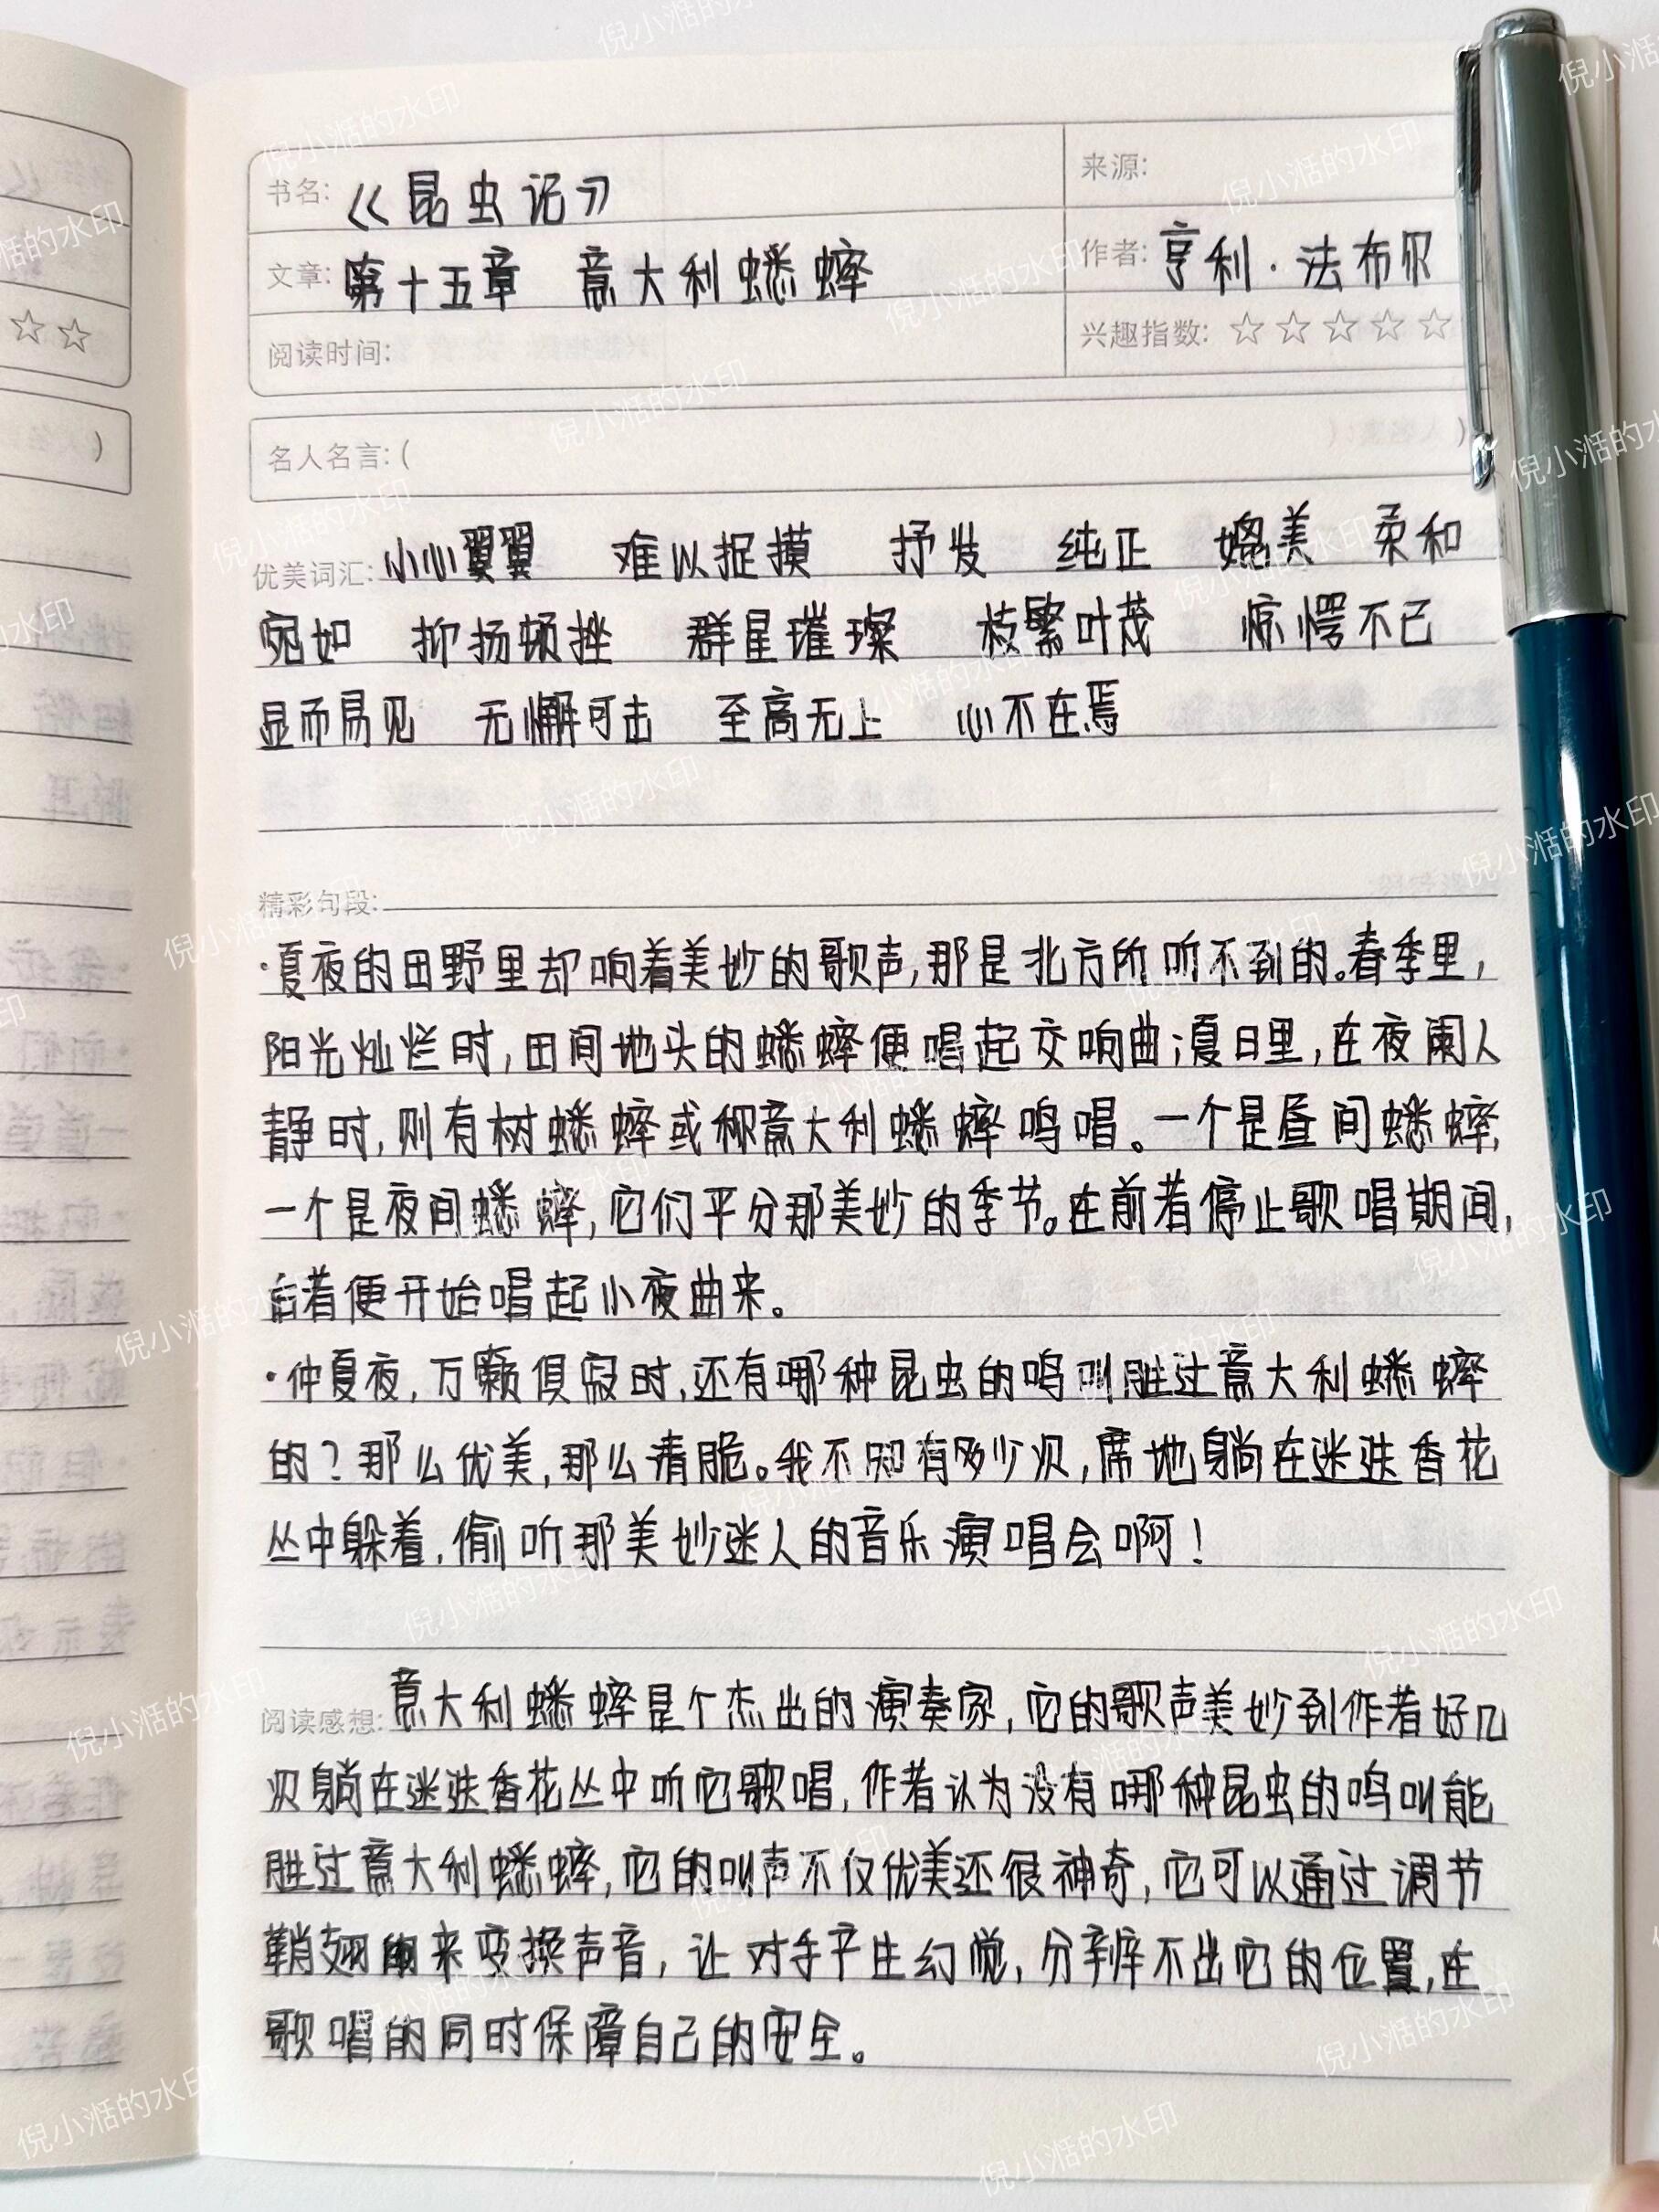 书名: 《昆虫记》
来源:
文章: 第十五章 意大利蟋蟀
作者: 亨利·法布尔
阅读时间:
兴趣指数: ☆☆☆☆☆
名人名言:( )
优美词汇: 小心翼翼 难以捉摸 抒发 纯正 媲美 柔和
宛如 抑扬顿挫 群星璀璨 枝繁叶茂 惊愕不已
显而易见 无懈可击 至高无上 心不在焉
精彩句段:
·夏夜的田野里却响着美妙的歌声,那是北方所听不到的。春季里,
阳光灿烂时,田间地头的蟋蟀便唱起交响曲;夏日里,在夜阑人
静时,则有树蟋蟀或称意大利蟋蟀鸣唱。一个是昼间蟋蟀,
一个是夜间蟋蟀,它们平分那美妙的季节。在前者停止歌唱期间,
后者便开始唱起小夜曲来。
·仲夏夜,万籁俱寂时,还有哪种昆虫的鸣叫胜过意大利蟋蟀
的?那么优美,那么清脆。我不知有多少次,席地躺在迷迭香花
丛中躲着,偷听那美妙迷人的音乐演唱会啊!
阅读感想: 意大利蟋蟀是个杰出的演奏家,它的歌声美妙到作者好几
次躺在迷迭香花丛中听它歌唱,作者认为没有哪种昆虫的鸣叫能
胜过意大利蟋蟀,它的叫声不仅优美还很神奇,它可以通过调节
鞘翅来变换声音,让对手产生幻觉,分辨不出它的位置,在
歌唱的同时保障自己的安全。
倪小湉的水印